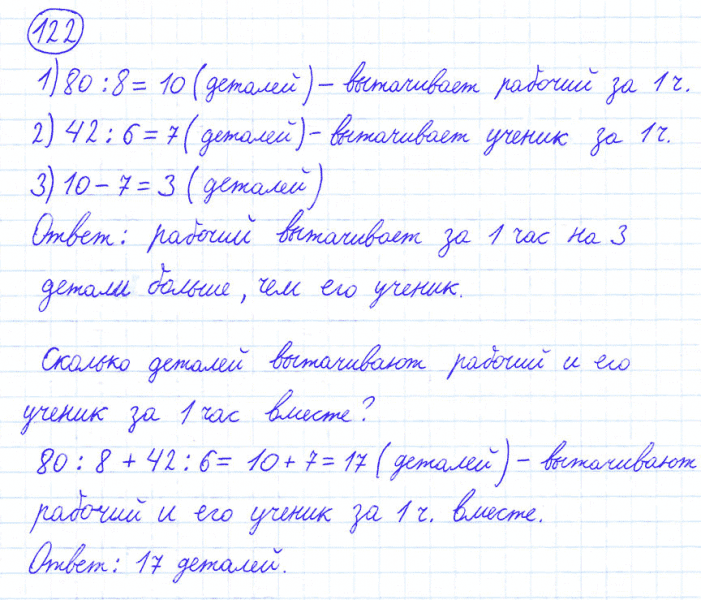 122
1) 80 : 8 = 10 (деталей) – вытачивает рабочий за 1 ч.
2) 42 : 6 = 7 (деталей) – вытачивает ученик за 1 ч.
3) 10 – 7 = 3 (деталей)
Ответ: рабочий вытачивает за 1 час на 3
детали больше, чем его ученик.
Сколько деталей вытачивают рабочий и его
ученик за 1 час вместе?
80 : 8 + 42 : 6 = 10 + 7 = 17 (деталей) – вытачивают
рабочий и его ученик за 1 ч. вместе.
Ответ: 17 деталей.